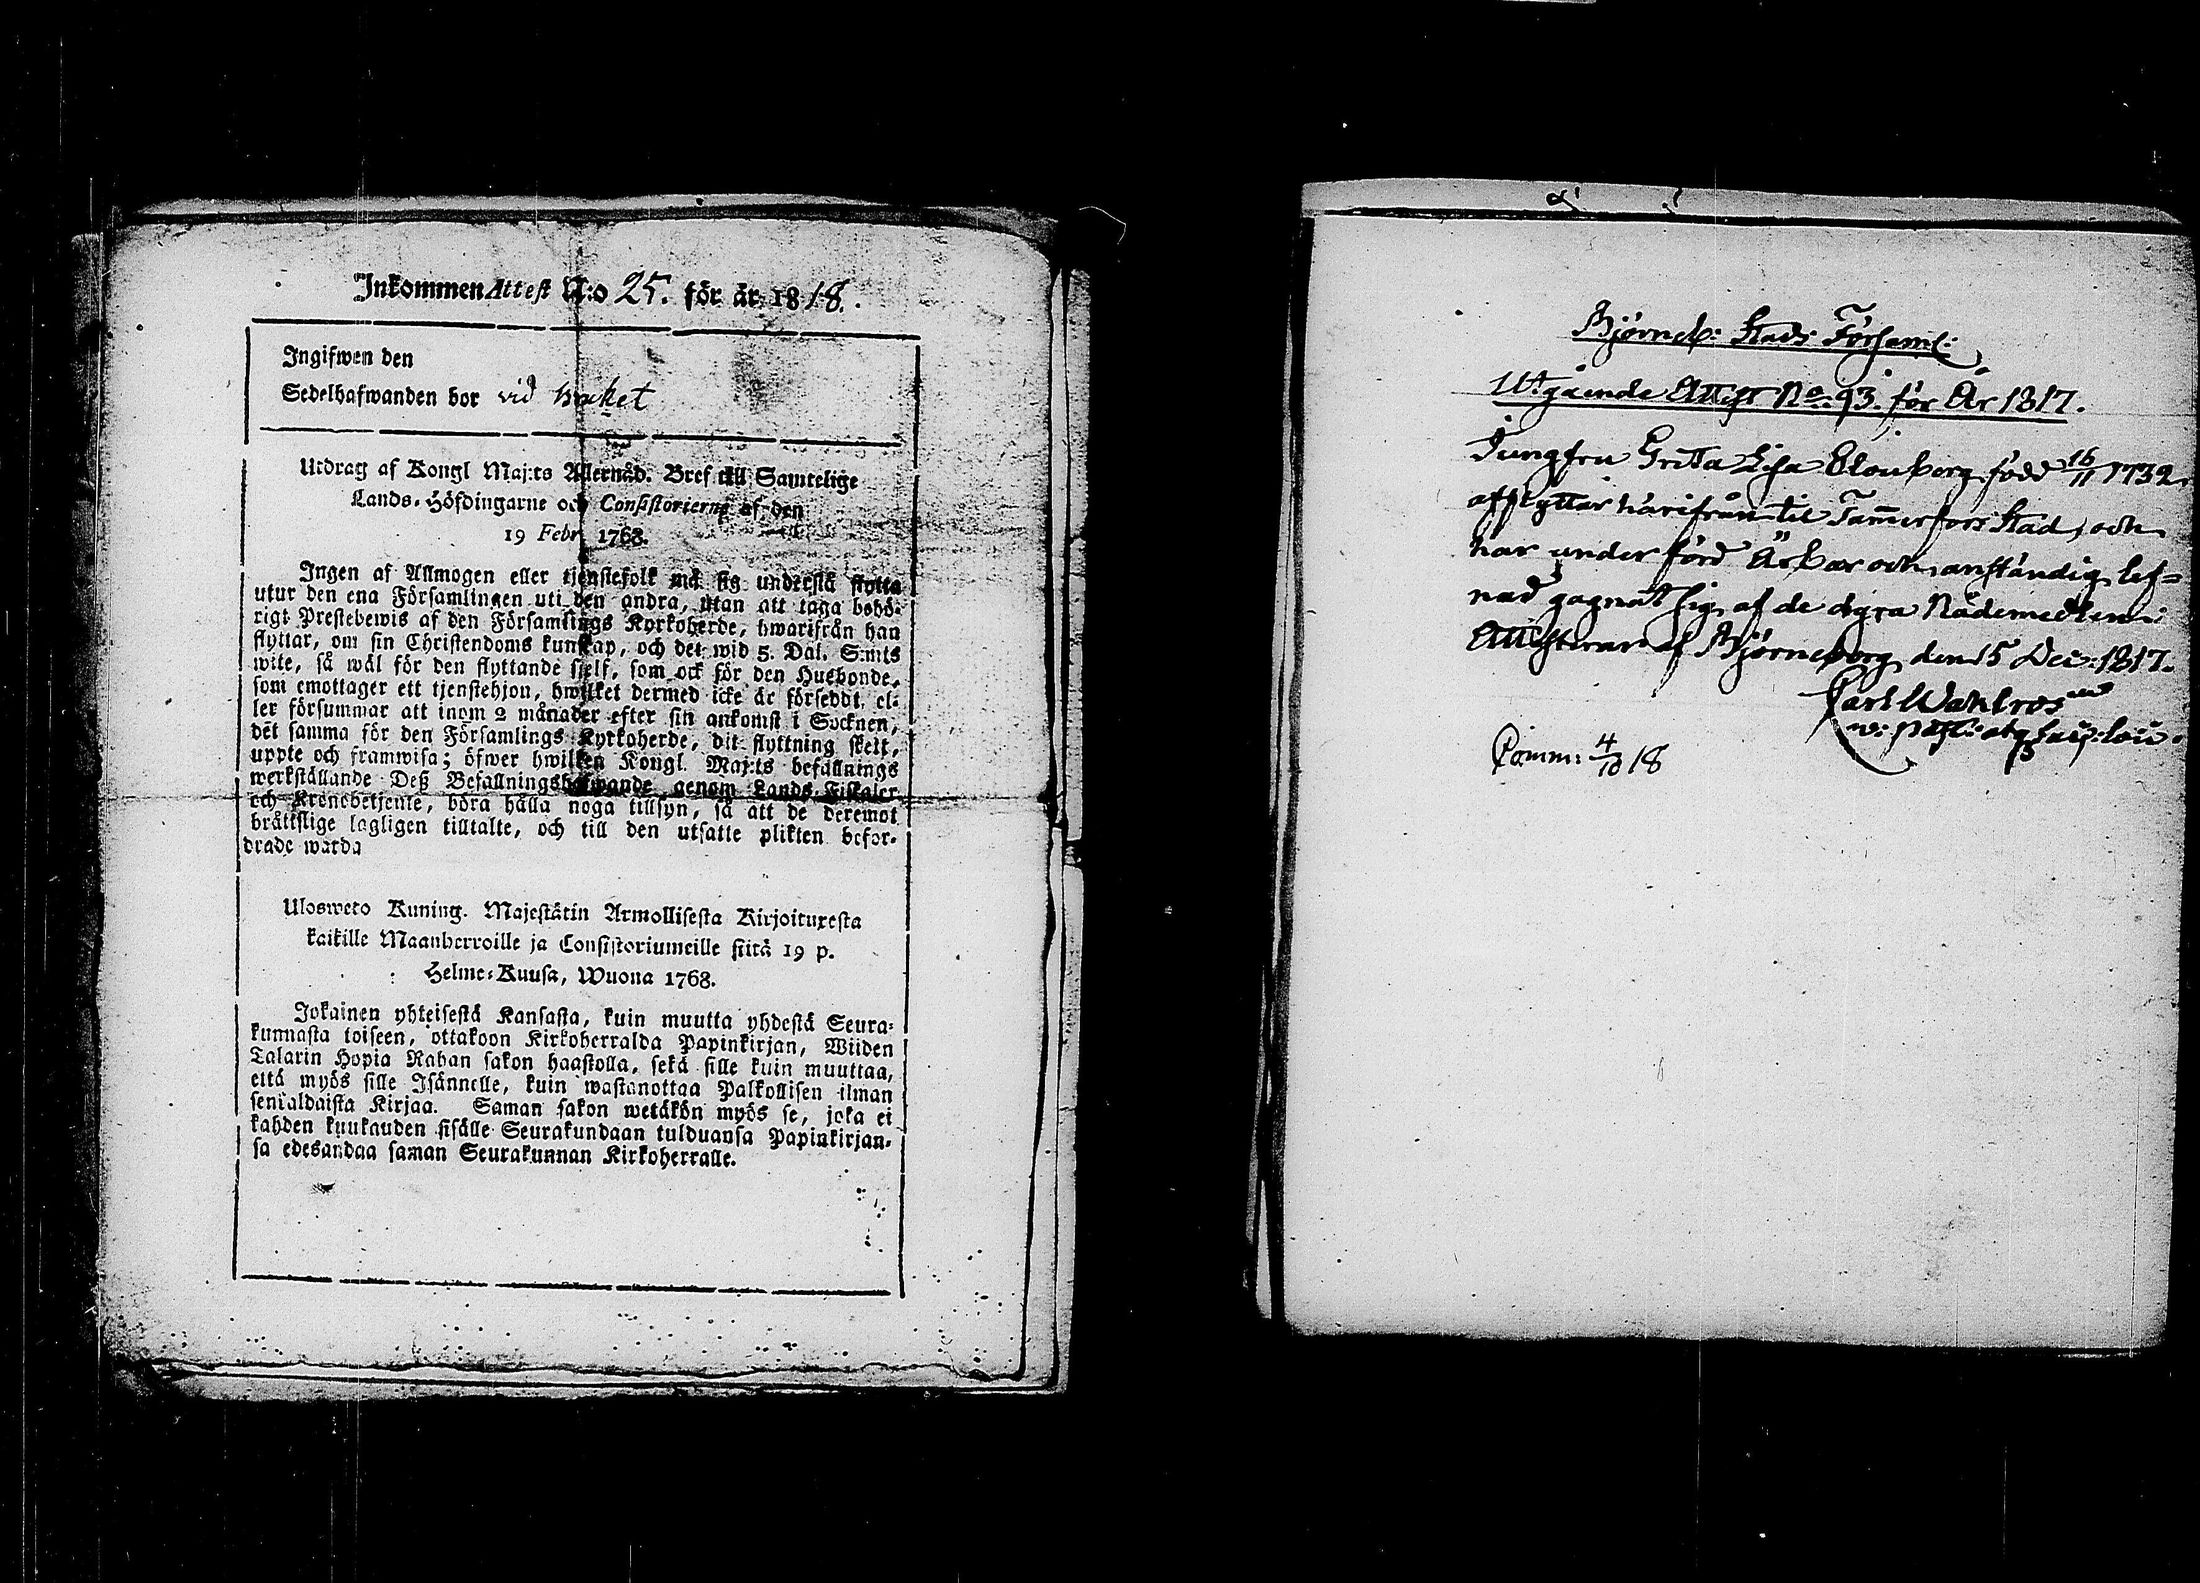 Inkommen Attest N:o 25. för år 1818.
Ingifwen den
Sedelhafwanden bor vid
Utdrag af Kongl Maj:ts Allernåd. Bref till Samtelige
Lands-Höfdingarne och Consistorierne af den
19 Febr. 1768.
Ingen af Allmogen eller tjenstefolk må sig understå flytta
utur den ena Församlingen uti den andra, utan att taga behö-
rigt Prestebewis af den Församlings Kyrkoherde, hwarifrån han
flyttar, om sin Christendoms kunskap, och det wid 5. Dal. S:mts
wite, så wäl för den flyttande sjelf, som ock för den Husbonde,
som emottager ett tjenstehjon, hwilket dermed icke är försedt, el-
ler försummar att inom 2 månader efter sin ankomst i Socknen,
det samma för den Församlings Kyrkoherde, dit flyttning skett,
uppte och framwisa; öfwer hwilken Kongl. Maj:ts befallnings
werkställande Deß Befallningshafwande genom Lands-Fiskaler
och Kronobetjente, böra hålla noga tillsyn, så att de deremot
bråttslige lagligen tilltalte, och till den utsatte plikten befor-
drade warda
Ulosweto Kuning. Majestätin Armollisesta Kirjoituxesta
kaikille Maanherroille ja Consistoriumeille siitä 19 p.
Helme-Kuusa, Wuona 1768.
Jokainen yhteisestä Kansasta, kuin muutta yhdestä Seura-
kunnasta toiseen, ottakoon Kirkoherralda Papinkirjan, Wiiden
Talarin Hopia Rahan sakon haastolla, sekä sille kuin muuttaa,
että myös sille Isännelle, kuin wastanottaa Palkollisen ilman
senialdaista Kirjaa. Saman sakon wetäkön myös se, joka ei
kahden kuukauden sisälle Seurakundaan tulduansa Papinkirjan-
sa edesandaa saman Seurakunnan Kirkoherralle.
Björneb: Stads Församl:
Utgående Attest No. 93. för År 1817.
Jungfru Greta Lisa född 16/11 1732
afflyttar härifrån til Tammerfors Stad, och
har under förd Ärbar och anständig lef-
nad gagnat sig af de dyra Nådemedlen:
Attesterar af Björneborg den 15 Dec: 1817.
Carl Wahlroos
Comm: 4/10 18